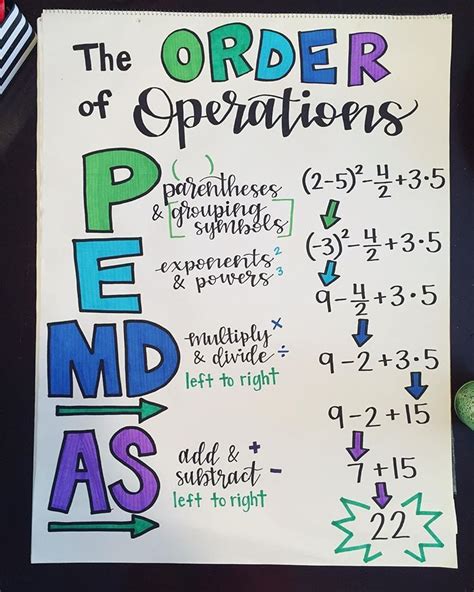 The ORDER
of Operations
P
( )
parentheses
& [grouping
symbols]
E
exponents²
& powers³
MD
multiply ×
& divide ÷
left to right
AS
add & +
subtract -
left to right
(2-5)²-4/2+3·5
(-3)²-4/2+3·5
9-4/2+3·5
9-2+3·5
9-2+15
7+15
22